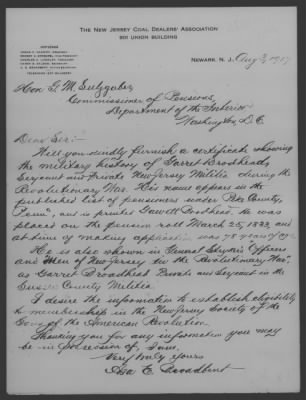 THE NEW JERSEY COAL DEALERS' ASSOCIATION
901 UNION BUILDING
OFFICERS
NEWARK, N. J., Aug 3, 1917
Hon. G. M. Saltzgaber,
Commissioner of Pensions,
Department of the Interior
Washington, D.C.
Dear Sir:-
Will you kindly furnish a certificate showing
the military history of Garret Brodhead,
Sergeant and Private New Jersey Militia during the
Revolutionary War. His name appears in the
published list of pensioners under Pike County,
Penn, and is printed Brodhead. He was
placed on the pension roll March 25, 1833, and
at time of making application was
He is also shown in General Stryker's Officers
and Men of New Jersey in the Revolutionary War,
as Garret Broadhead Private and Sergeant in the
Sussex County Militia.
I desire the information to establish eligibility
to membership in the New Jersey Society of the
Sons of the American Revolution.
Thanking you for any information you may
be in possession of, I am,
Very truly yours
E. Broadhurst